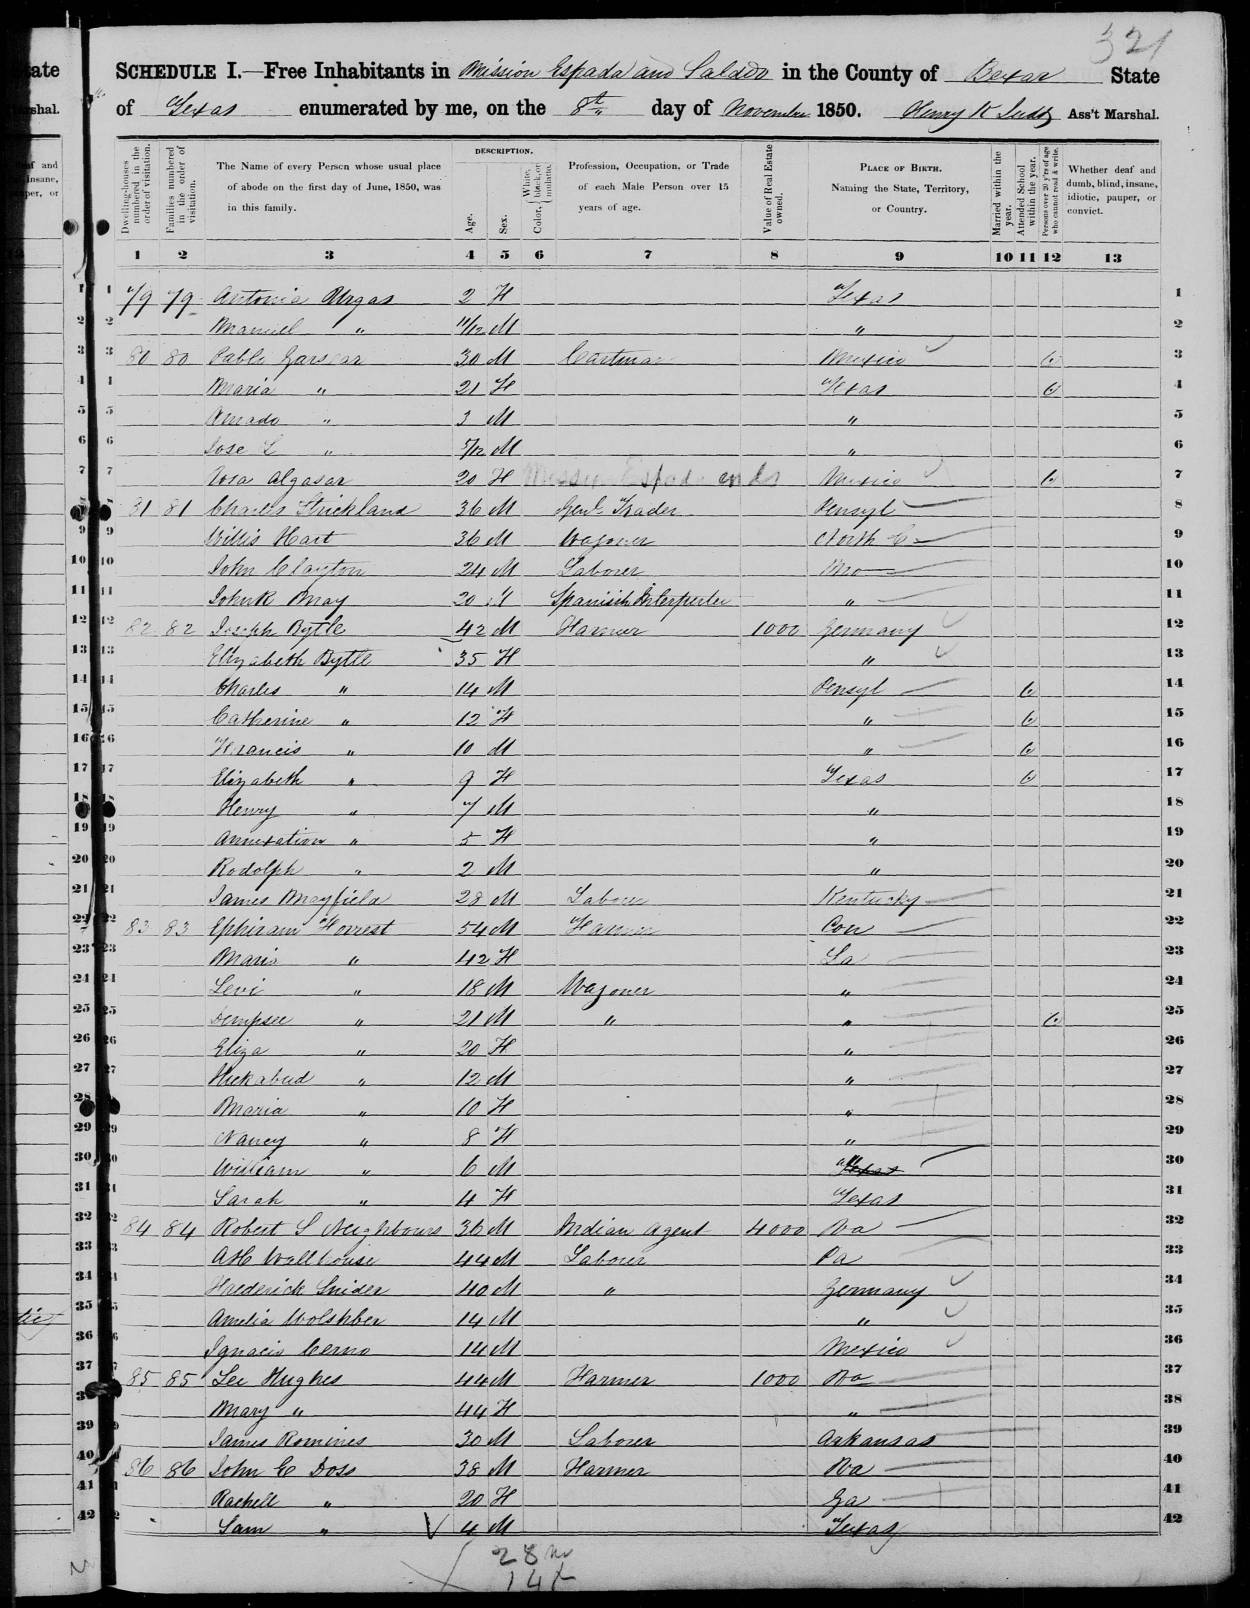 321
SCHEDULE I.—Free Inhabitants in Mission Espada and Salado in the County of Bexar State
of Texas enumerated by me, on the 8th day of November 1850. Henry K Judd Ass't Marshal.
Dwelling-houses numbered in the order of visitation.
Families numbered in the order of visitation.
The Name of every Person whose usual place of abode on the first day of June, 1850, was in this family.
DESCRIPTION.
Age.
Sex.
Color, { White, black, or mulatto.
Profession, Occupation, or Trade of each Male Person over 15 years of age.
Value of Real Estate owned.
PLACE OF BIRTH. Naming the State, Territory, or Country.
Married within the year.
Attended School within the year.
Persons over 20 y'rs of age who cannot read & write.
Whether deaf and dumb, blind, insane, idiotic, pauper, or convict.
1 2 3 4 5 6 7 8 9 10 11 12 13
1 79 79 Antonia 2 F Texas 1
2 Manuel " 11/12 M " 2
3 80 80 Pablo 30 M Cartman Mexico 3
4 Maria " 21 F Texas 4
5 Amado " 3 M " 5
6 Jose L " 5/12 M " 6
7 Rosa Algasar 20 F Mission Espada ends Mexico 7
8 81 81 Charles Strickland 36 M Genl Trader Pensyl 8
9 Willis Hart 36 M Wagoner North C 9
10 John Clayton 24 M Laborer Mo 10
11 John R May 20 M Spanish Interpreter " 11
12 82 82 Joseph Bytle 42 M Farmer 1000 Germany 12
13 Elizabeth Bytle 35 F " 13
14 Charles " 14 M Pensyl 14
15 Catherine " 12 F " 15
16 Francis " 10 M " 16
17 Elizabeth " 9 F Texas 17
18 Henry " 7 M " 18
19 Annexation " 5 F " 19
20 Rodolph " 2 M " 20
21 James Mayfield 28 M Labour Kentucky 21
22 83 83 Ephiram Forrest 54 M Farmer Con 22
23 Maria " 42 F La 23
24 Levi " 18 M Wagoner " 24
25 Dempsee " 21 M " " 25
26 Eliza " 20 F " 26
27 Huckabud " 12 M " 27
28 Maria " 10 F " 28
29 Nancy " 8 F " 29
30 William " 6 M " Texas 30
31 Sarah " 4 F Texas 31
32 84 84 Robert S Neighbours 36 M Indian Agent 4000 Va 32
33 Wallhouse 44 M Laborer Pa 33
34 Frederick Snider 40 M " Germany 34
35 Amelia 14 M " 35
36 Ignacio Cerno 14 M Mexico 36
37 85 85 Lee Hughes 44 M Farmer 1000 Va 37
38 Mary " 44 F " 38
39 James Romines 30 M Laborer Arkansas 39
40 86 86 John C Doss 38 M Farmer Va 40
41 Rachell " 20 F Ga 41
42 Sam " 4 M Texas 42
28 m
14 f